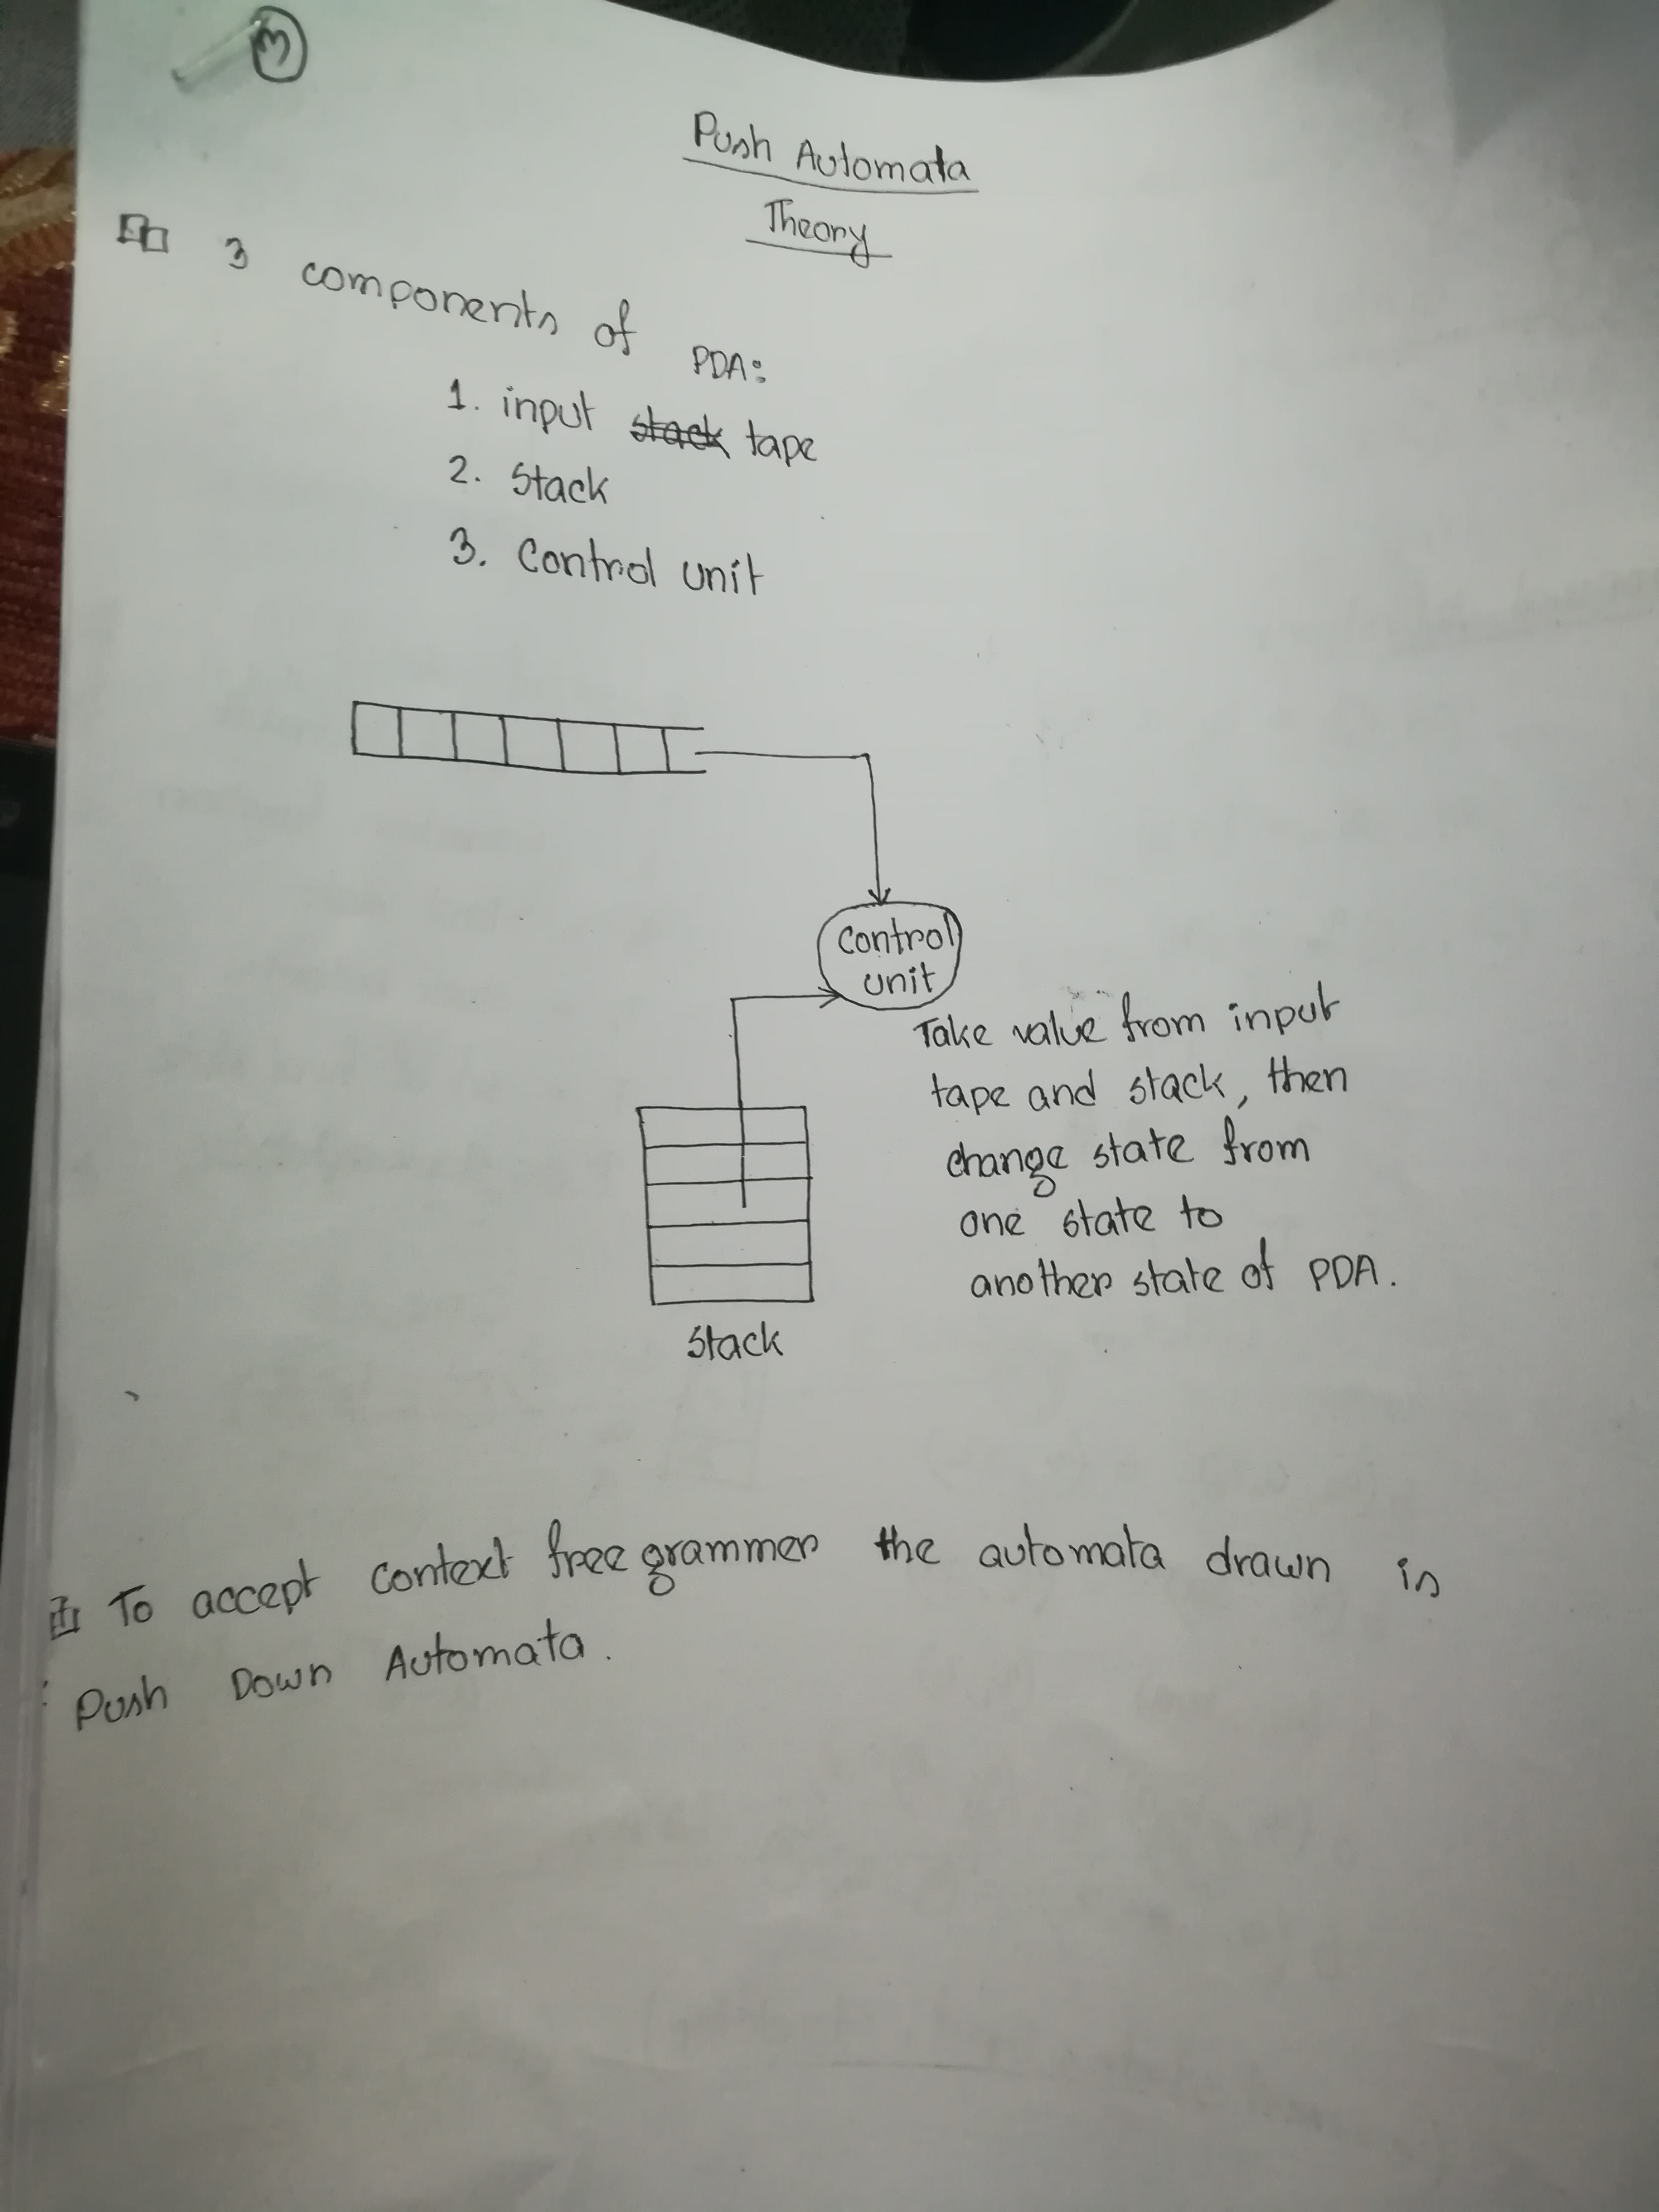 3
Push Automata
Theory
3 components of PDA:
1. input stack tape
2. Stack
3. Control unit
Control
unit
Take value from input
tape and stack, then
change state from
one state to
another state of PDA.
Stack
To accept context free grammer the automata drawn is
Push Down Automata.